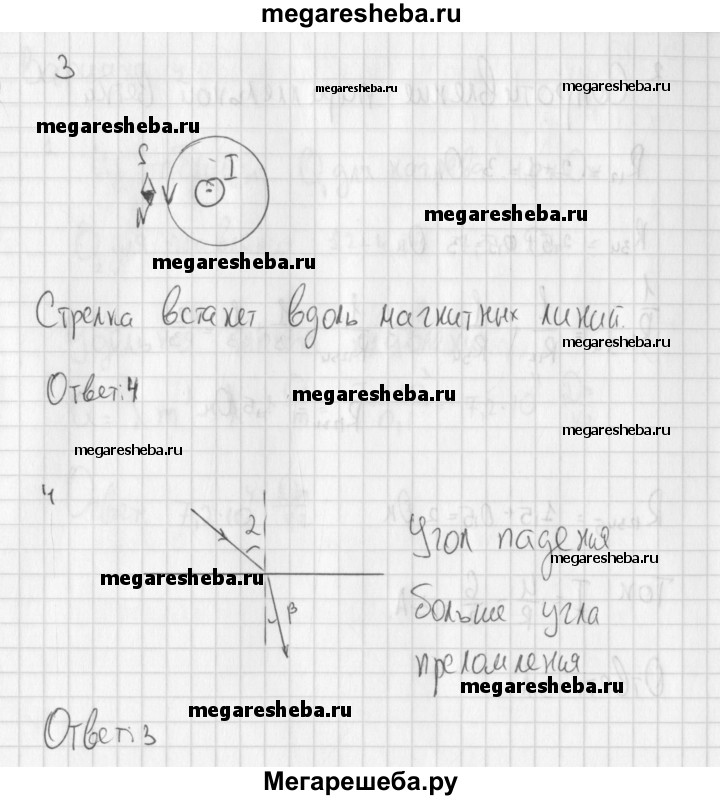 megaresheba.ru
3
megaresheba.ru
megaresheba.ru
megaresheba.ru
S
I
N
megaresheba.ru
megaresheba.ru
Стрелка встанет вдоль магнитных линий.
megaresheba.ru
Ответ: 4
megaresheba.ru
megaresheba.ru
megaresheba.ru
4
2
Угол падения
megaresheba.ru
megaresheba.ru
β
больше угла
преломления
megaresheba.ru
megaresheba.ru
Ответ: 3
Мегарешеба.ру